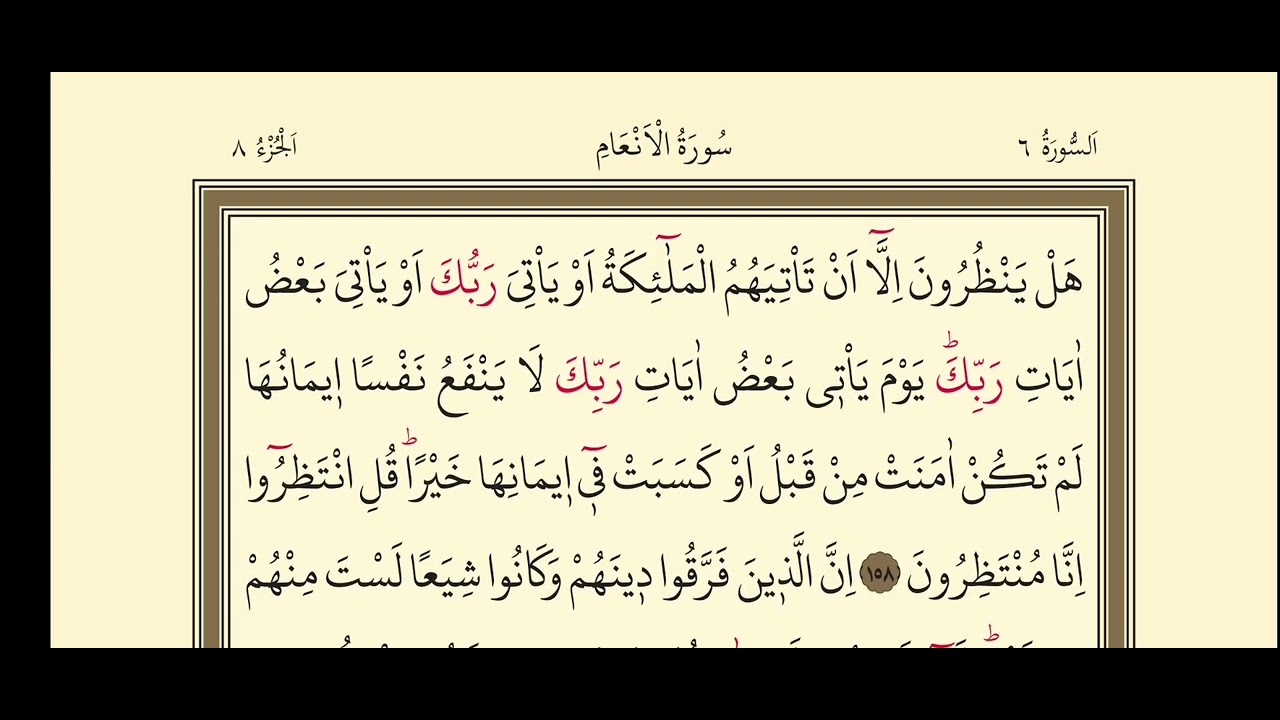 اَلسُّورَةُ ٦ سُورَةُ الْاَنْعَامِ اَلْجُزْءُ ٨
هَلْ يَنْظُرُونَ اِلَّٓا اَنْ تَاْتِيَهُمُ الْمَلٰٓئِكَةُ اَوْ يَاْتِيَ رَبُّكَ اَوْ يَاْتِيَ بَعْضُ
اٰيَاتِ رَبِّكَۜ يَوْمَ يَاْت۪ي بَعْضُ اٰيَاتِ رَبِّكَ لَا يَنْفَعُ نَفْسًا ا۪يمَانُهَا
لَمْ تَكُنْ اٰمَنَتْ مِنْ قَبْلُ اَوْ كَسَبَتْ ف۪ٓي ا۪يمَانِهَا خَيْرًاۜ قُلِ انْتَظِرُٓوا
اِنَّا مُنْتَظِرُونَ ١٥٨ اِنَّ الَّذ۪ينَ فَرَّقُوا د۪ينَهُمْ وَكَانُوا شِيَعًا لَسْتَ مِنْهُمْ